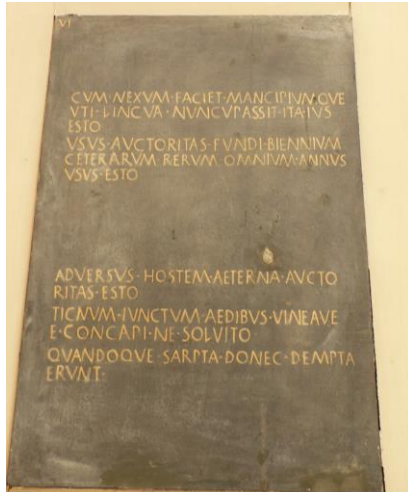 VI
CVM·NEXVM·FACIET·MANCIPIVMQVE
VTI·LINGVA·NVNCVPASSIT·ITA·IVS
ESTO
VSVS·AVCTORITAS·FVNDI·BIENNIVM
CETERARVM·RERVM·OMNIVM·ANNVS
VSVS·ESTO
ADVERSVS·HOSTEM·AETERNA·AVCTO
RITAS·ESTO
TIGNVM·IVNCTVM·AEDIBVS·VINEAVE
E·CONCAPI·NE·SOLVITO·
QVANDOQVE·SARPTA·DONEC·DEMPTA
ERVNT·